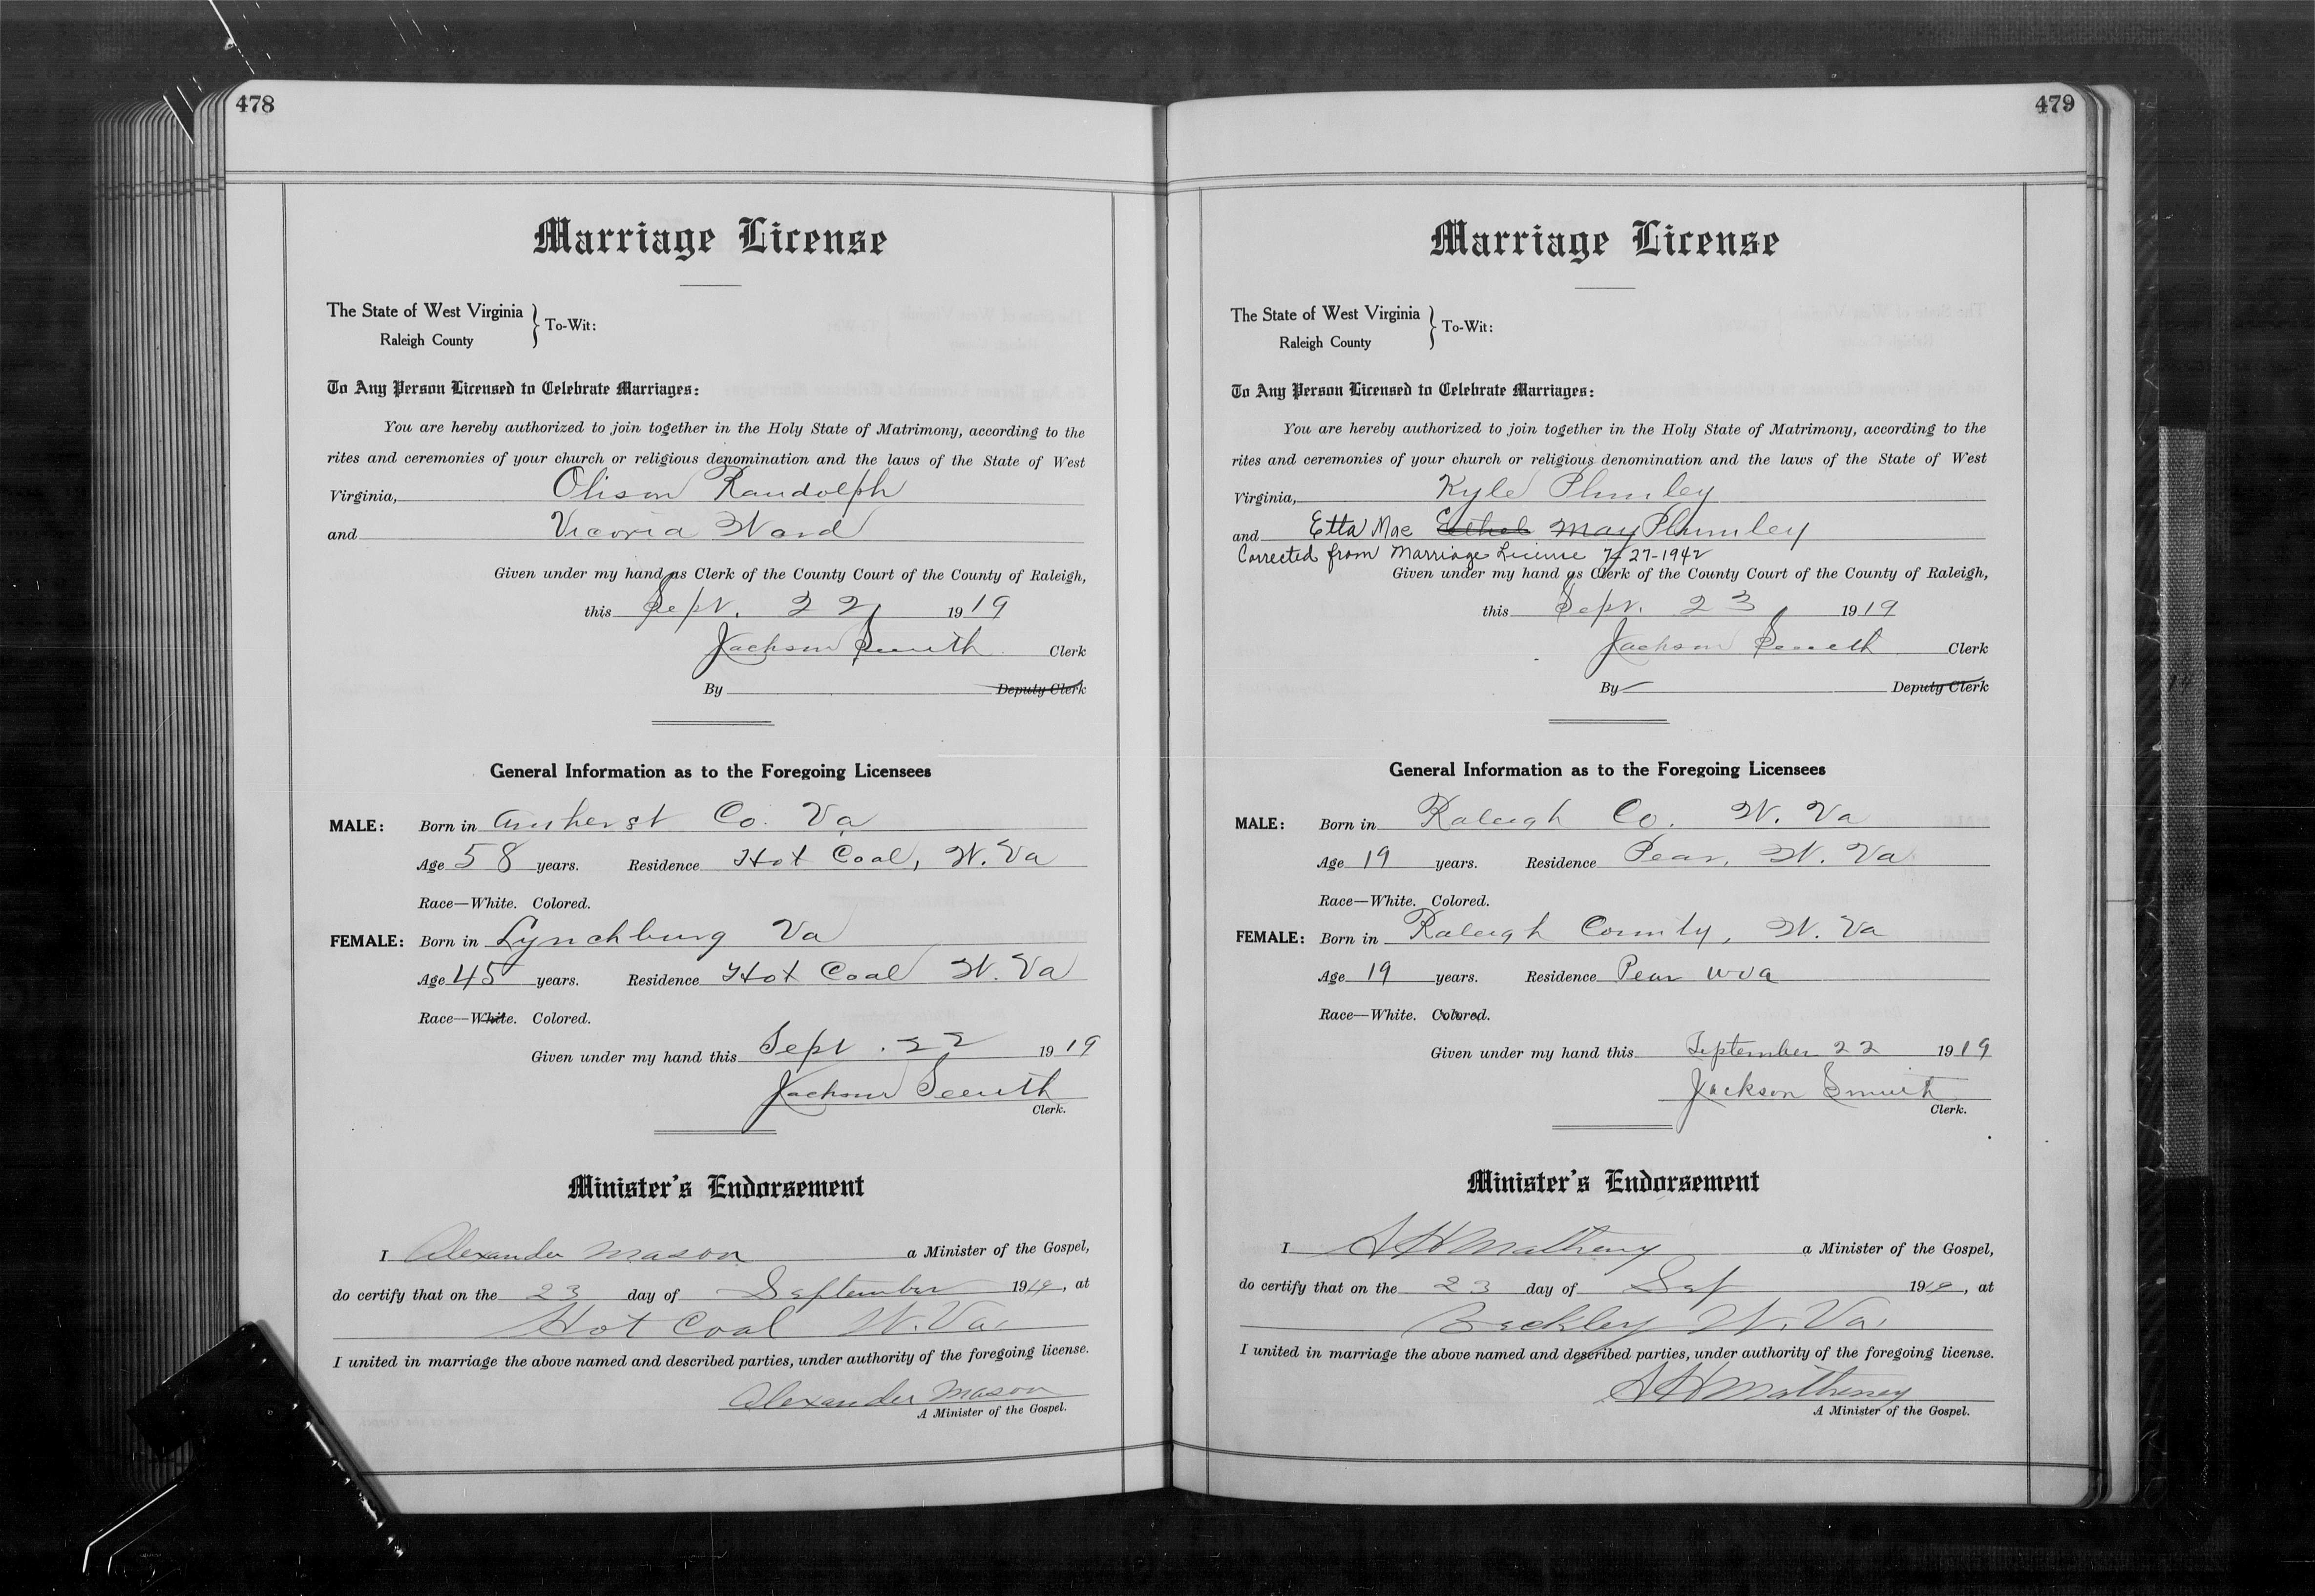 478
Marriage License
The State of West Virginia } To-Wit:
Raleigh County
To Any Person Licensed to Celebrate Marriages:
You are hereby authorized to join together in the Holy State of Matrimony, according to the
rites and ceremonies of your church or religious denomination and the laws of the State of West
Virginia, Olison Randolph
and Vicoria Ward
Given under my hand as Clerk of the County Court of the County of Raleigh,
this Sept. 22, 1919
Jackson Smith Clerk
By Deputy Clerk
General Information as to the Foregoing Licensees
MALE: Born in Amherst Co. Va
Age 58 years. Residence Hot Coal, W. Va
Race—White. Colored.
FEMALE: Born in Lynchburg Va
Age 45 years. Residence Hot Coal W. Va
Race—White. Colored.
Given under my hand this Sept. 22 1919
Jackson Smith
Clerk.
Minister's Endorsement
I Alexander Mason a Minister of the Gospel,
do certify that on the 23 day of September 1919, at
Hot Coal W. Va.
I united in marriage the above named and described parties, under authority of the foregoing license.
Alexander Mason
A Minister of the Gospel.
479
Marriage License
The State of West Virginia } To-Wit:
Raleigh County
To Any Person Licensed to Celebrate Marriages:
You are hereby authorized to join together in the Holy State of Matrimony, according to the
rites and ceremonies of your church or religious denomination and the laws of the State of West
Virginia, Kyle Plumley
and Etta Mae Ethel May Plumley
Corrected from Marriage License 7-27-1942
Given under my hand as Clerk of the County Court of the County of Raleigh,
this Sept. 23, 1919
Jackson Smith Clerk
By Deputy Clerk
General Information as to the Foregoing Licensees
MALE: Born in Raleigh Co. W. Va
Age 19 years. Residence Pear, W. Va
Race—White. Colored.
FEMALE: Born in Raleigh County, W. Va
Age 19 years. Residence Pear W Va
Race—White. Colored.
Given under my hand this September 22 1919
Jackson Smith
Clerk.
Minister's Endorsement
I A H Matheny a Minister of the Gospel,
do certify that on the 23 day of Sep 1919, at
Beckley W. Va.
I united in marriage the above named and described parties, under authority of the foregoing license.
A H Matheney
A Minister of the Gospel.